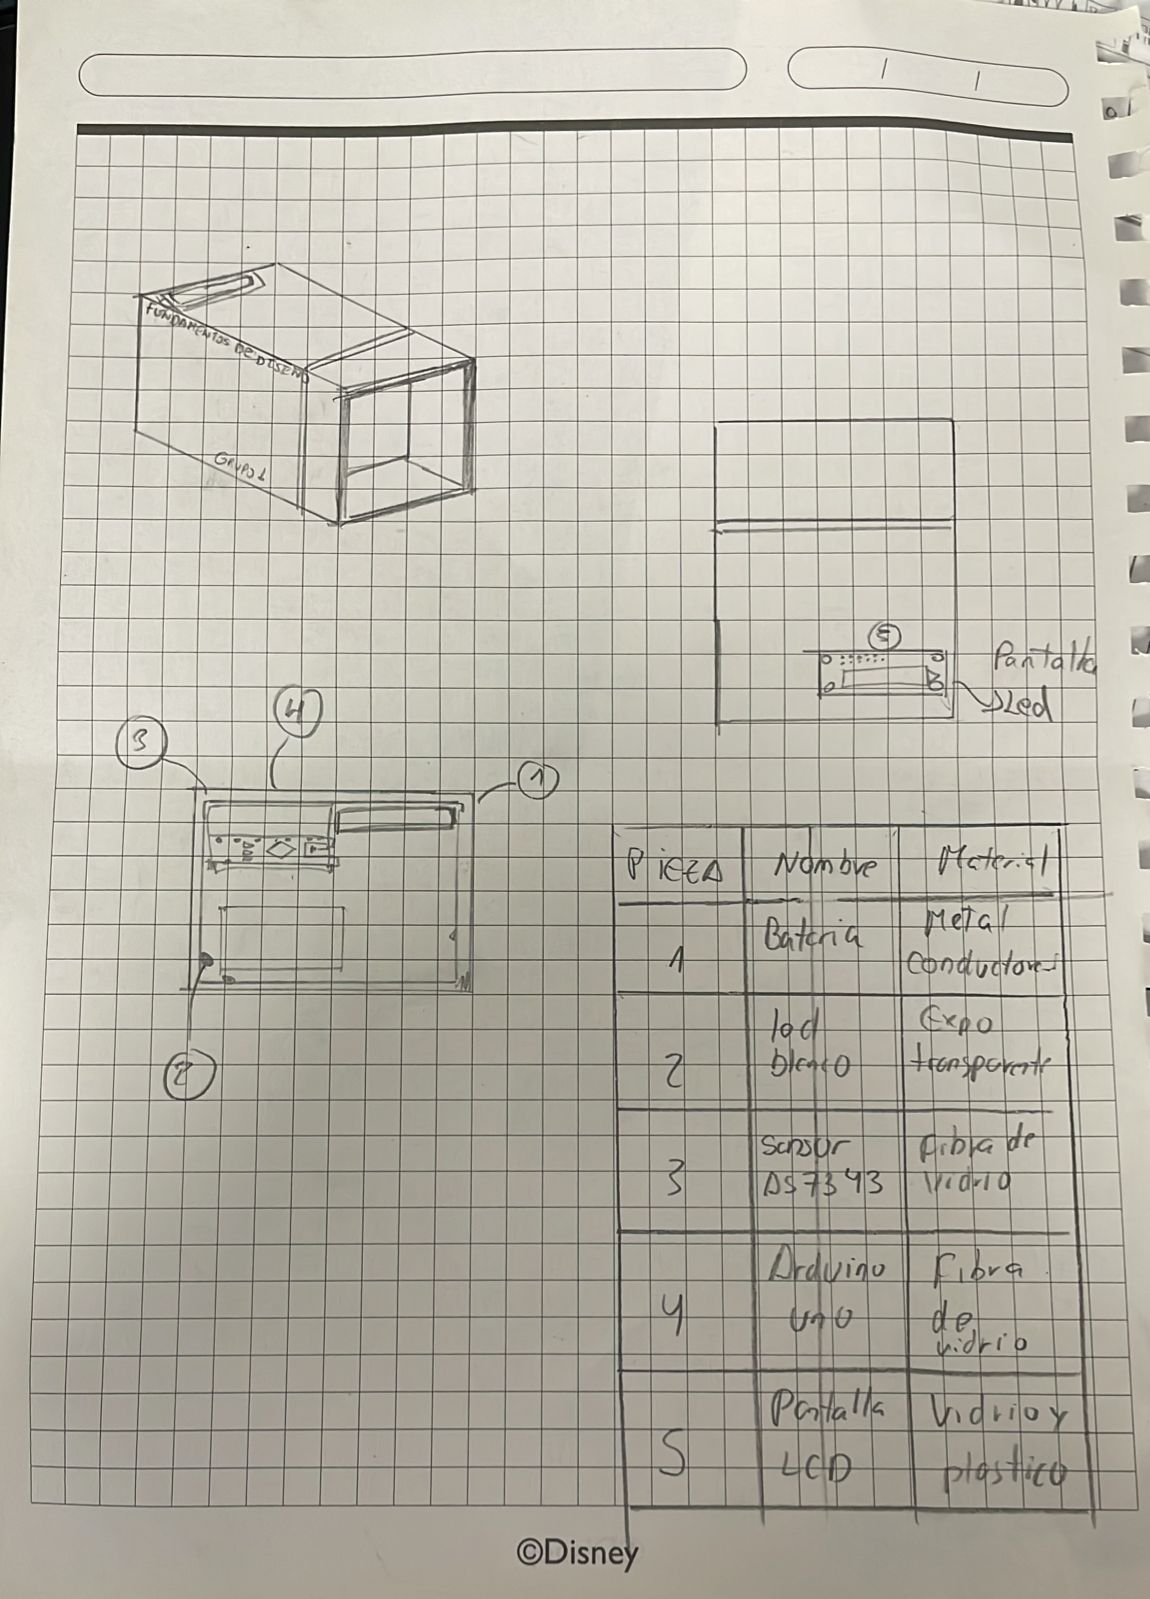 FUNDAMENTOS DE DISEÑO
GRUPO 1
5
Pantalla
Led
4
3
1
2
PIEZA Nombre Material
1 Bateria Metal
conductores
2 led Expo
blanco transparente
3 sensor Fibra de
DS7343 Vidrio
4 Arduino Fibra
uno de
vidrio
5 Pantalla Vidrio y
LCD plastico
©Disney